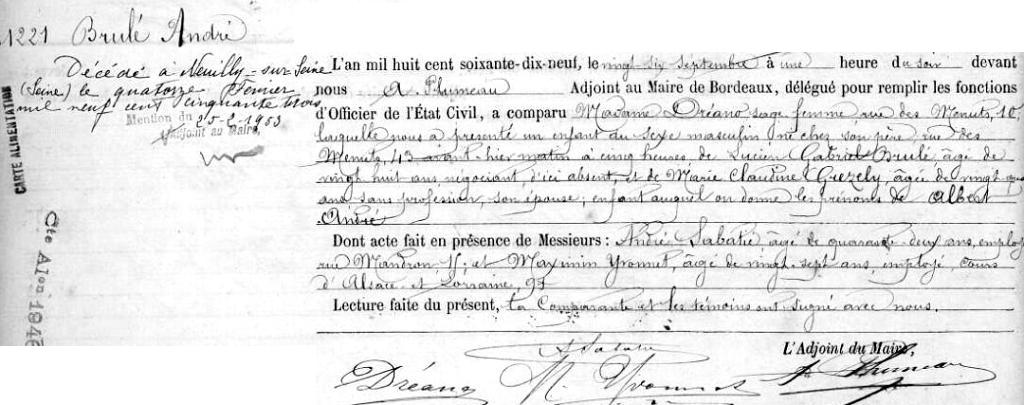 1221 Brulé André
Décédé à Neuilly-sur-Seine
(Seine) le quatorze Février
mil neuf cent cinquante trois
Mention du 25-2-1953
L'adjoint au Maire,
CARTE ALIMENTATION
Cte Alon 1946
L'an mil huit cent soixante-dix-neuf, le vingt six Septembre à une heure du soir devant
nous A. Plumeau Adjoint au Maire de Bordeaux, délégué pour remplir les fonctions
d'Officier de l'État Civil, a comparu Madame Dréano sage femme, rue des Menuts, 10,
laquelle nous a présenté un enfant du sexe masculin, né chez son père rue des
Menuts, 43 avant hier matin à cinq heures, de Lucien Gabriel Brulé, âgé de
vingt huit ans, négociant, d'ici absent, et de Marie Claudine Grezely, âgée de vingt
ans, sans profession, son épouse; enfant auquel on donne les prénoms de Albert
André
Dont acte fait en présence de Messieurs : André Sabatié, âgé de quarante-deux ans, employé
rue Mandron, et Maximin Yvonnet, âgé de vingt-sept ans, employé, cours
d'Alsace et Lorraine, 97
Lecture faite du présent, la Comparante et les témoins ont signé avec nous.
L'Adjoint du Maire,
Dréano M. Yvonnet A. Plumeau